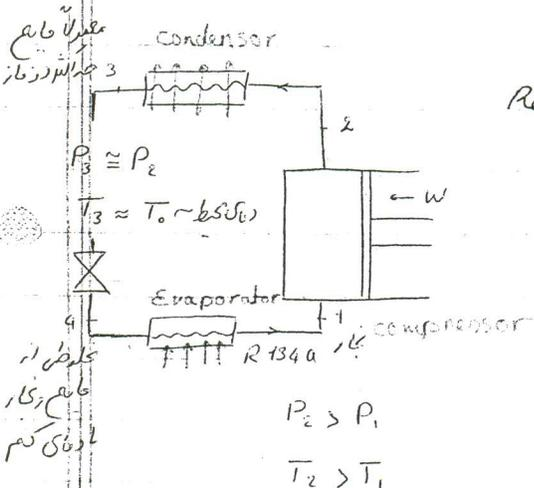 معمولاً مایع
condensor
3
2
P₃ ≅ P₂
T₃ ≈ T₀ ~ دمای محیط
← W
Evaporator
4
1
R 134a
بخار
compressor
مخلوطی از
مایع و بخار
با دمای کم
P₂ > P₁
T₂ > T₁